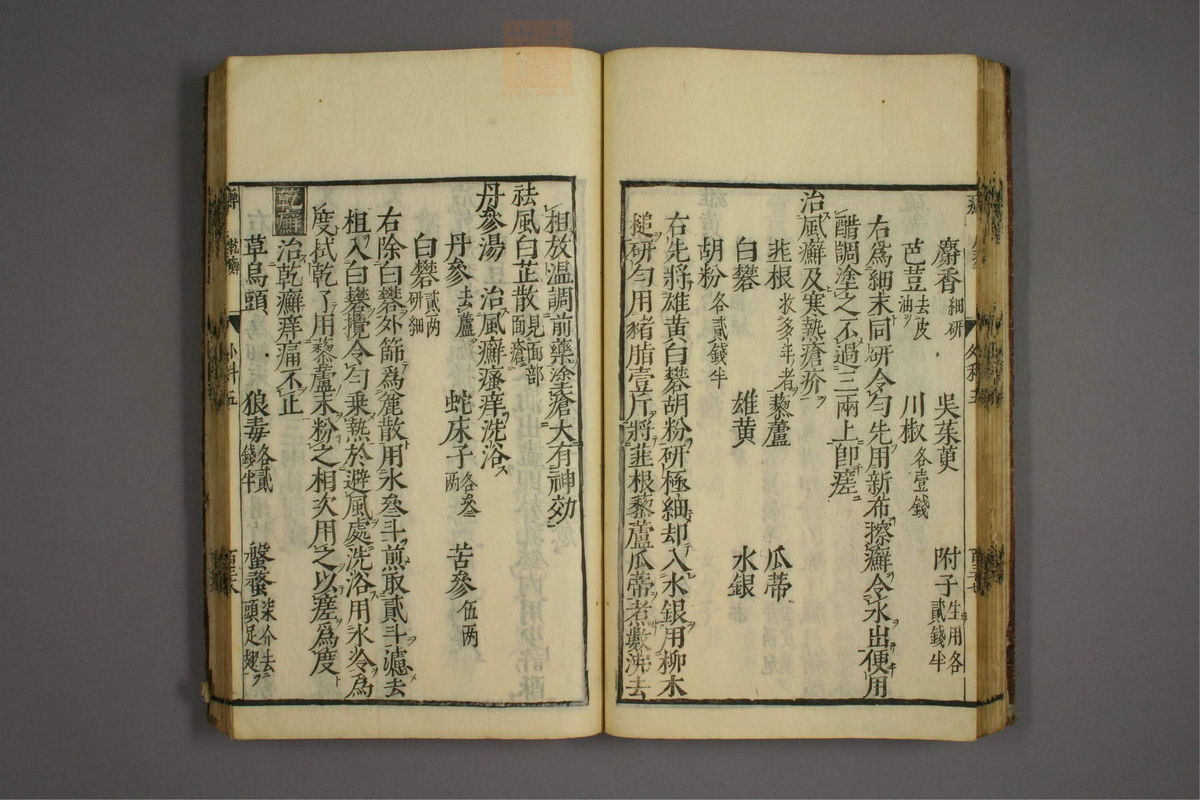 麝香細研　吳茱萸　附子生用各貳錢半
芭荳去皮油　川椒各壹錢
右爲細末同研令勻先用新布擦癬令水出便用
醋調塗之不過三兩上卽瘥
治風癬及寒熱瘡疥
韭根收多年者　藜蘆　瓜蒂
白礬　雄黃　水銀
胡粉各貳錢半
右先將雄黃白礬胡粉研極細却入水銀用柳木
搥研勻用豬脂壹斤將韭根藜蘆瓜蒂煮數沸去
柤放温調前藥塗瘡大有神効
祛風白芷散見面部面瘡
丹參湯　治風癬瘙痒洗浴
丹參去蘆　蛇床子各叁两　苦參伍两
白礬貳两研細
右除白礬外篩爲麄散用水叄斗煎取貳斗濾去
柤入白礬攪令勻乗熱於避風處洗浴用水冷爲
度拭乾了用藜蘆末粉之相次用之以瘥爲度
乾癬
治乾癬痒痛不止
草烏頭　狼毒各貳錢半　盤蝥柒个去頭足翅
癬　乾癬　外科五